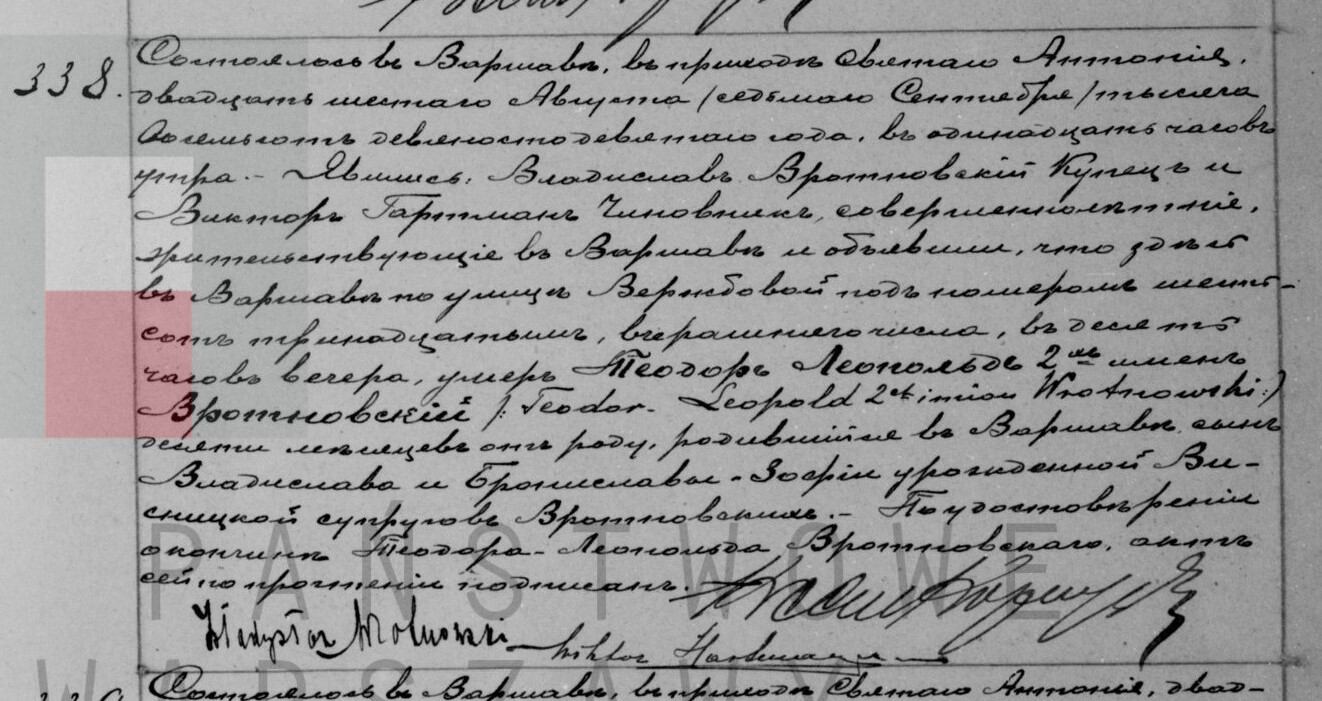 338.
Состоялось въ Варшавѣ, въ приходѣ Святаго Антонія,
двадцать шестаго Августа /седьмаго Сентября/ тысяча
восемьсотъ девяносто девятаго года, въ одинадцать часовъ
утра.- Явились: Владиславъ Вротновскій Купецъ и
Викторъ Гартманъ Чиновникъ, совершеннолѣтніе,
жительствующіе въ Варшавѣ и объявили, что здѣсь
въ Варшавѣ по улицѣ Вержбовой подъ номеромъ шесть-
сотъ тринадцатымъ, вчерашняго числа, въ десять
часовъ вечера, умеръ Теодоръ Леопольдъ 2хъ именъ
Вротновскій /: Teodor-Leopold 2ch imion Wrotnowski:/
десяти мѣсяцевъ отъ роду, родившійся въ Варшавѣ, сынъ
Владислава и Брониславы-Зофіи урожденной Ви-
сницкой супруговъ Вротновскихъ.- По удостовѣреніи
о кончинѣ Теодора-Леопольда Вротновскаго, актъ
сей по прочтеніи подписанъ.
Władysław Wrotnowski
Wiktor Hartman
PAŃSTWOWE
WARSZAWY
Состоялось въ Варшавѣ, въ приходѣ Святаго Антонія, двад-